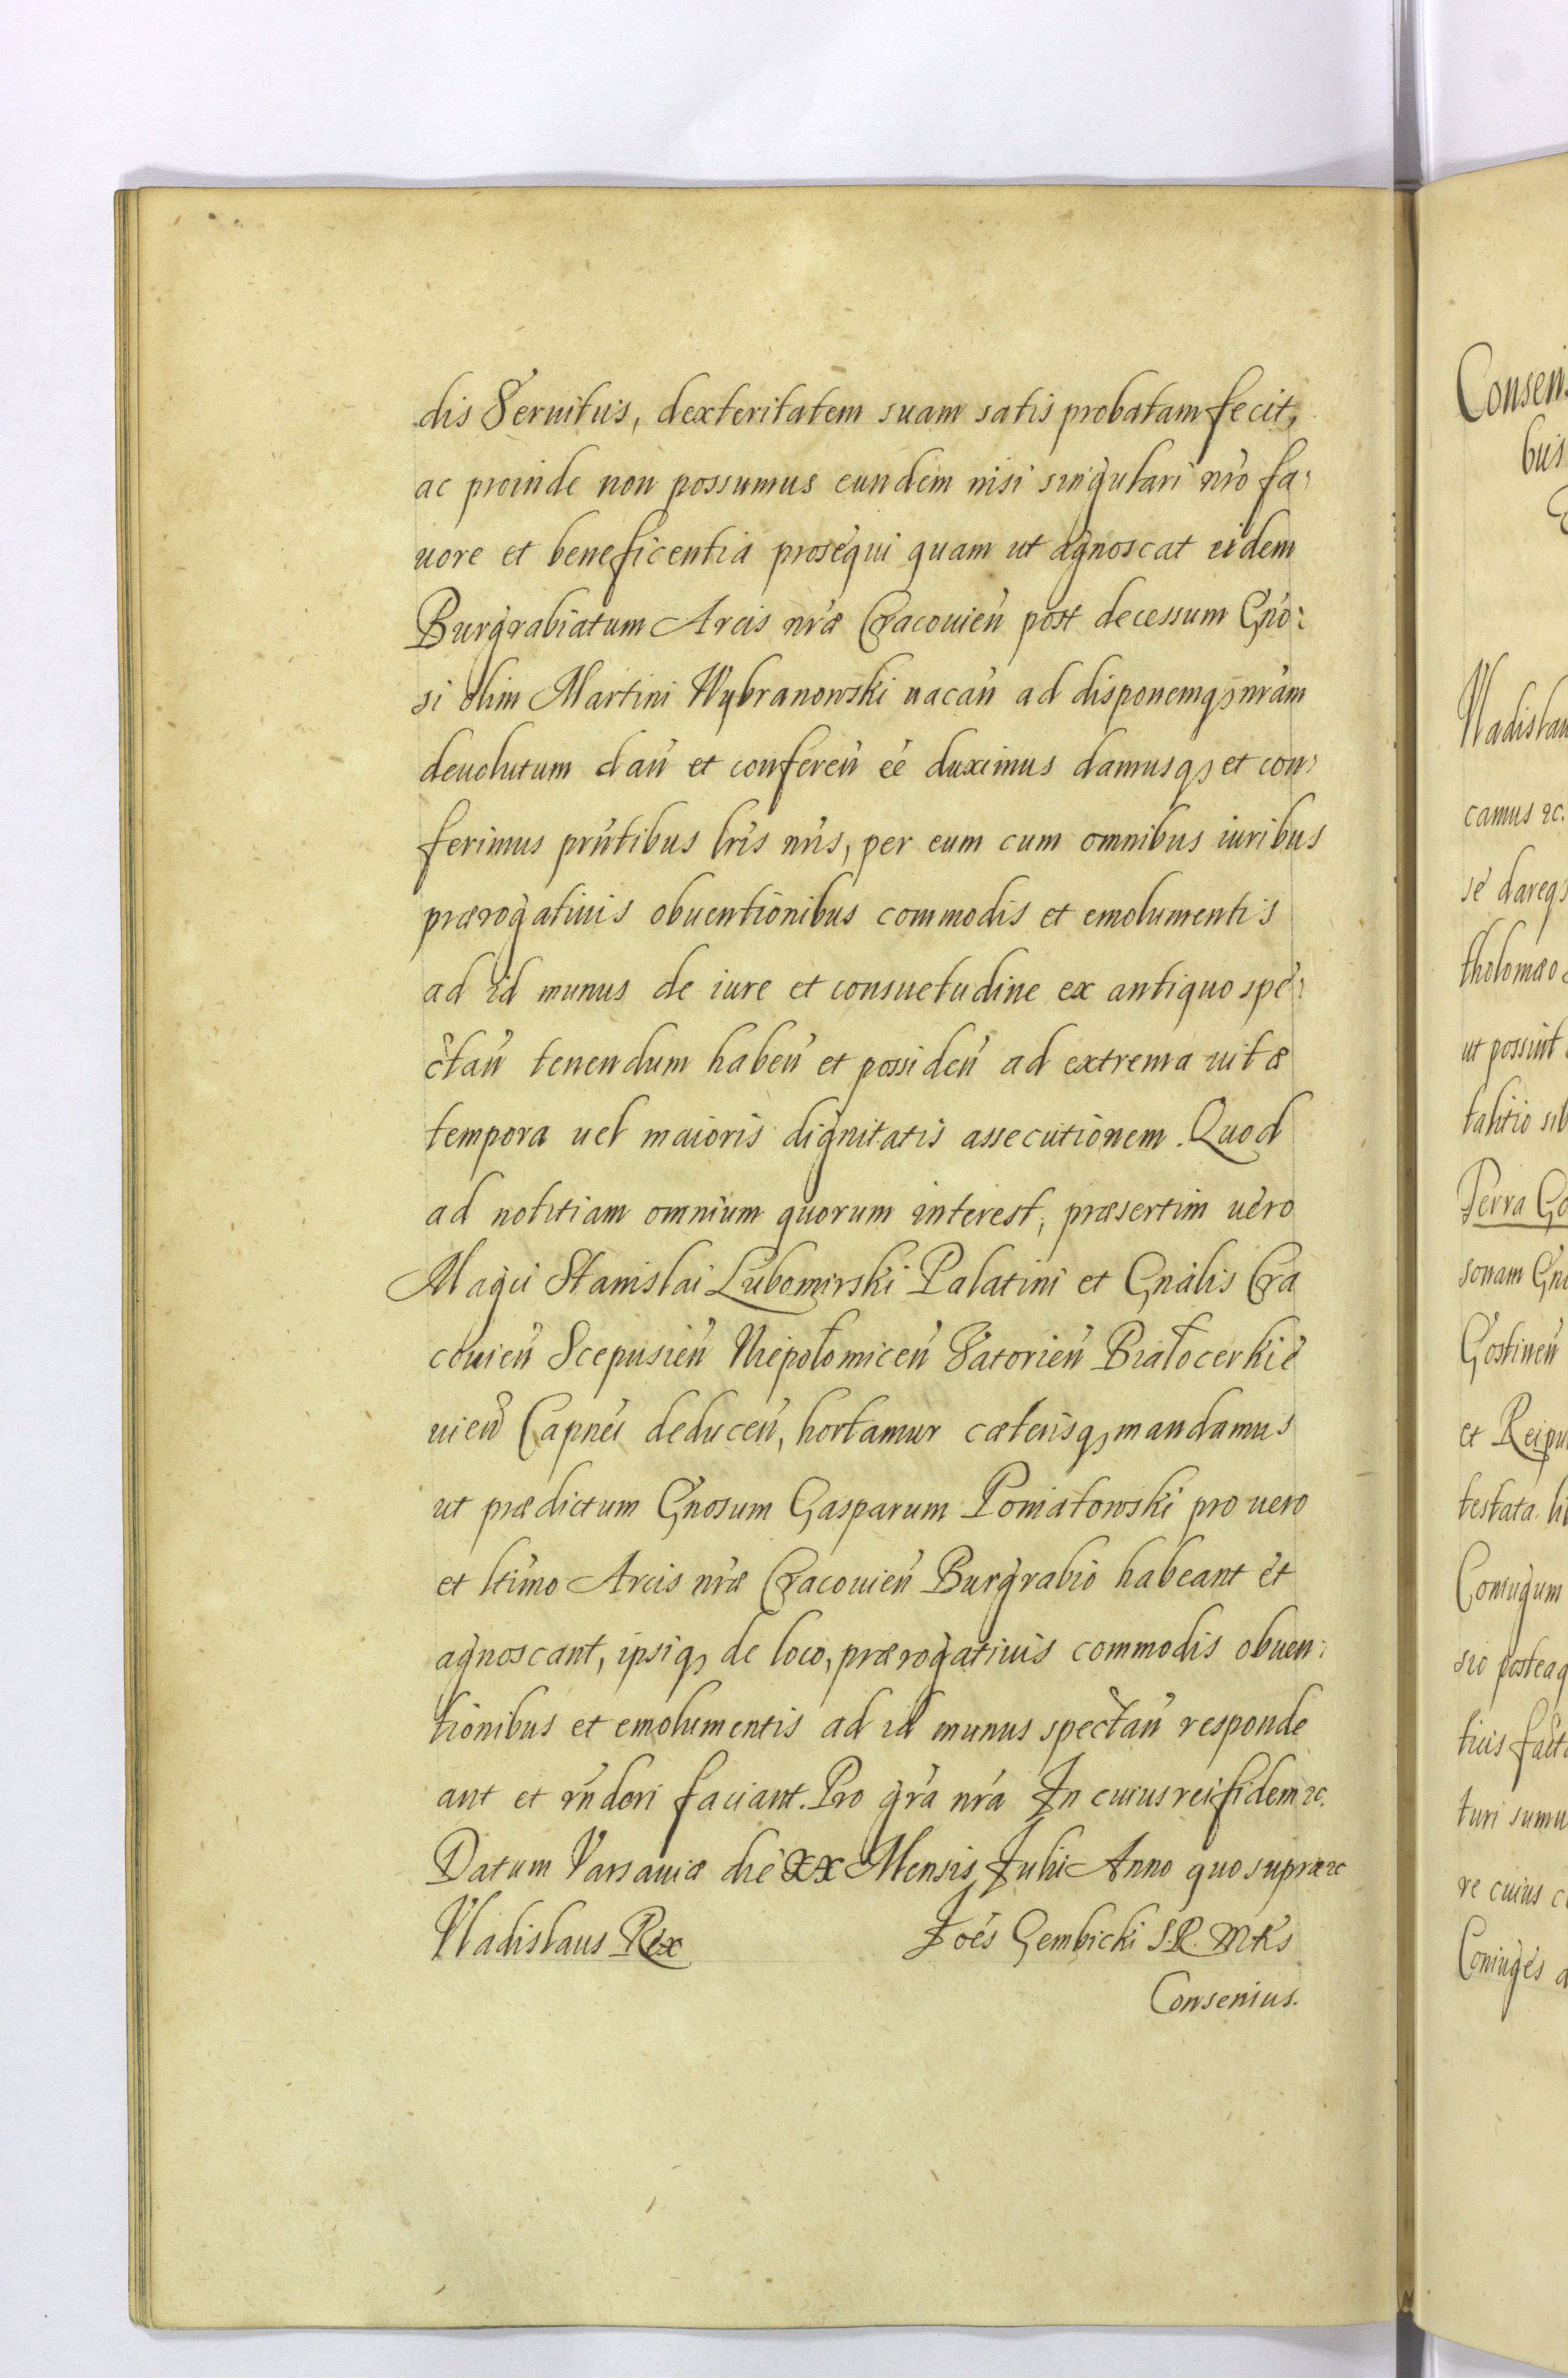 dis Seruitus, dexteritatem suam satis probatam fecit,
ac proinde non possumus eundem nisi singulari nro fa:
uore et beneficentia prosequi quam ut agnoscat eidem
Burgrabiatum Arcis nræ Cracouien post decessum Gno:
si olim Martini Wybranowski uacan ad disponemq nram
deuolutum dan et conferen ee duximus damusq et con:
ferimus prntibus lris nris, per eum cum omnibus iuribus
prærogatiuis obuentionibus commodis et emolumentis
ad id munus de iure et consuetudine ex antiquo spe:
ctan tenendum haben et possiden ad extrema uitæ
tempora uel maioris dignitatis assecutionem. Quod
ad notitiam omnium quorum interest, præsertim uero
Magci Stanislai Lubomirski Palatini et Gnalis Cra
couien Scepusien Niepołomicen Satorien Białocerkie
uien Capnei deducen, hortamur cæterisq mandamus
ut prædictum Gnosum Gasparum Poniatowski pro uero
et ltimo Arcis nræ Cracouien Burgrabio habeant et
agnoscant, ipsiq de loco, prærogatiuis commodis obuen:
tionibus et emolumentis ad id munus spectan responde
ant et rnderi faciant. Pro gra nra In cuius rei fidem &c.
Datum Varsauiæ die XX Mensis Julii Anno quo supra &c
Vladislaus Rex Joes Gembicki S.R. M
Consenius.
Consen
bus
Vladislau
camus &c.
se dareq
tholomæo
ut possint
talitio sib
Terra Go
sonam Gno
Gostinen
et Reipu
testata. li
Coniugum
sio posteaq
tius fact
turi sumu
re cuius c
Coniuges a